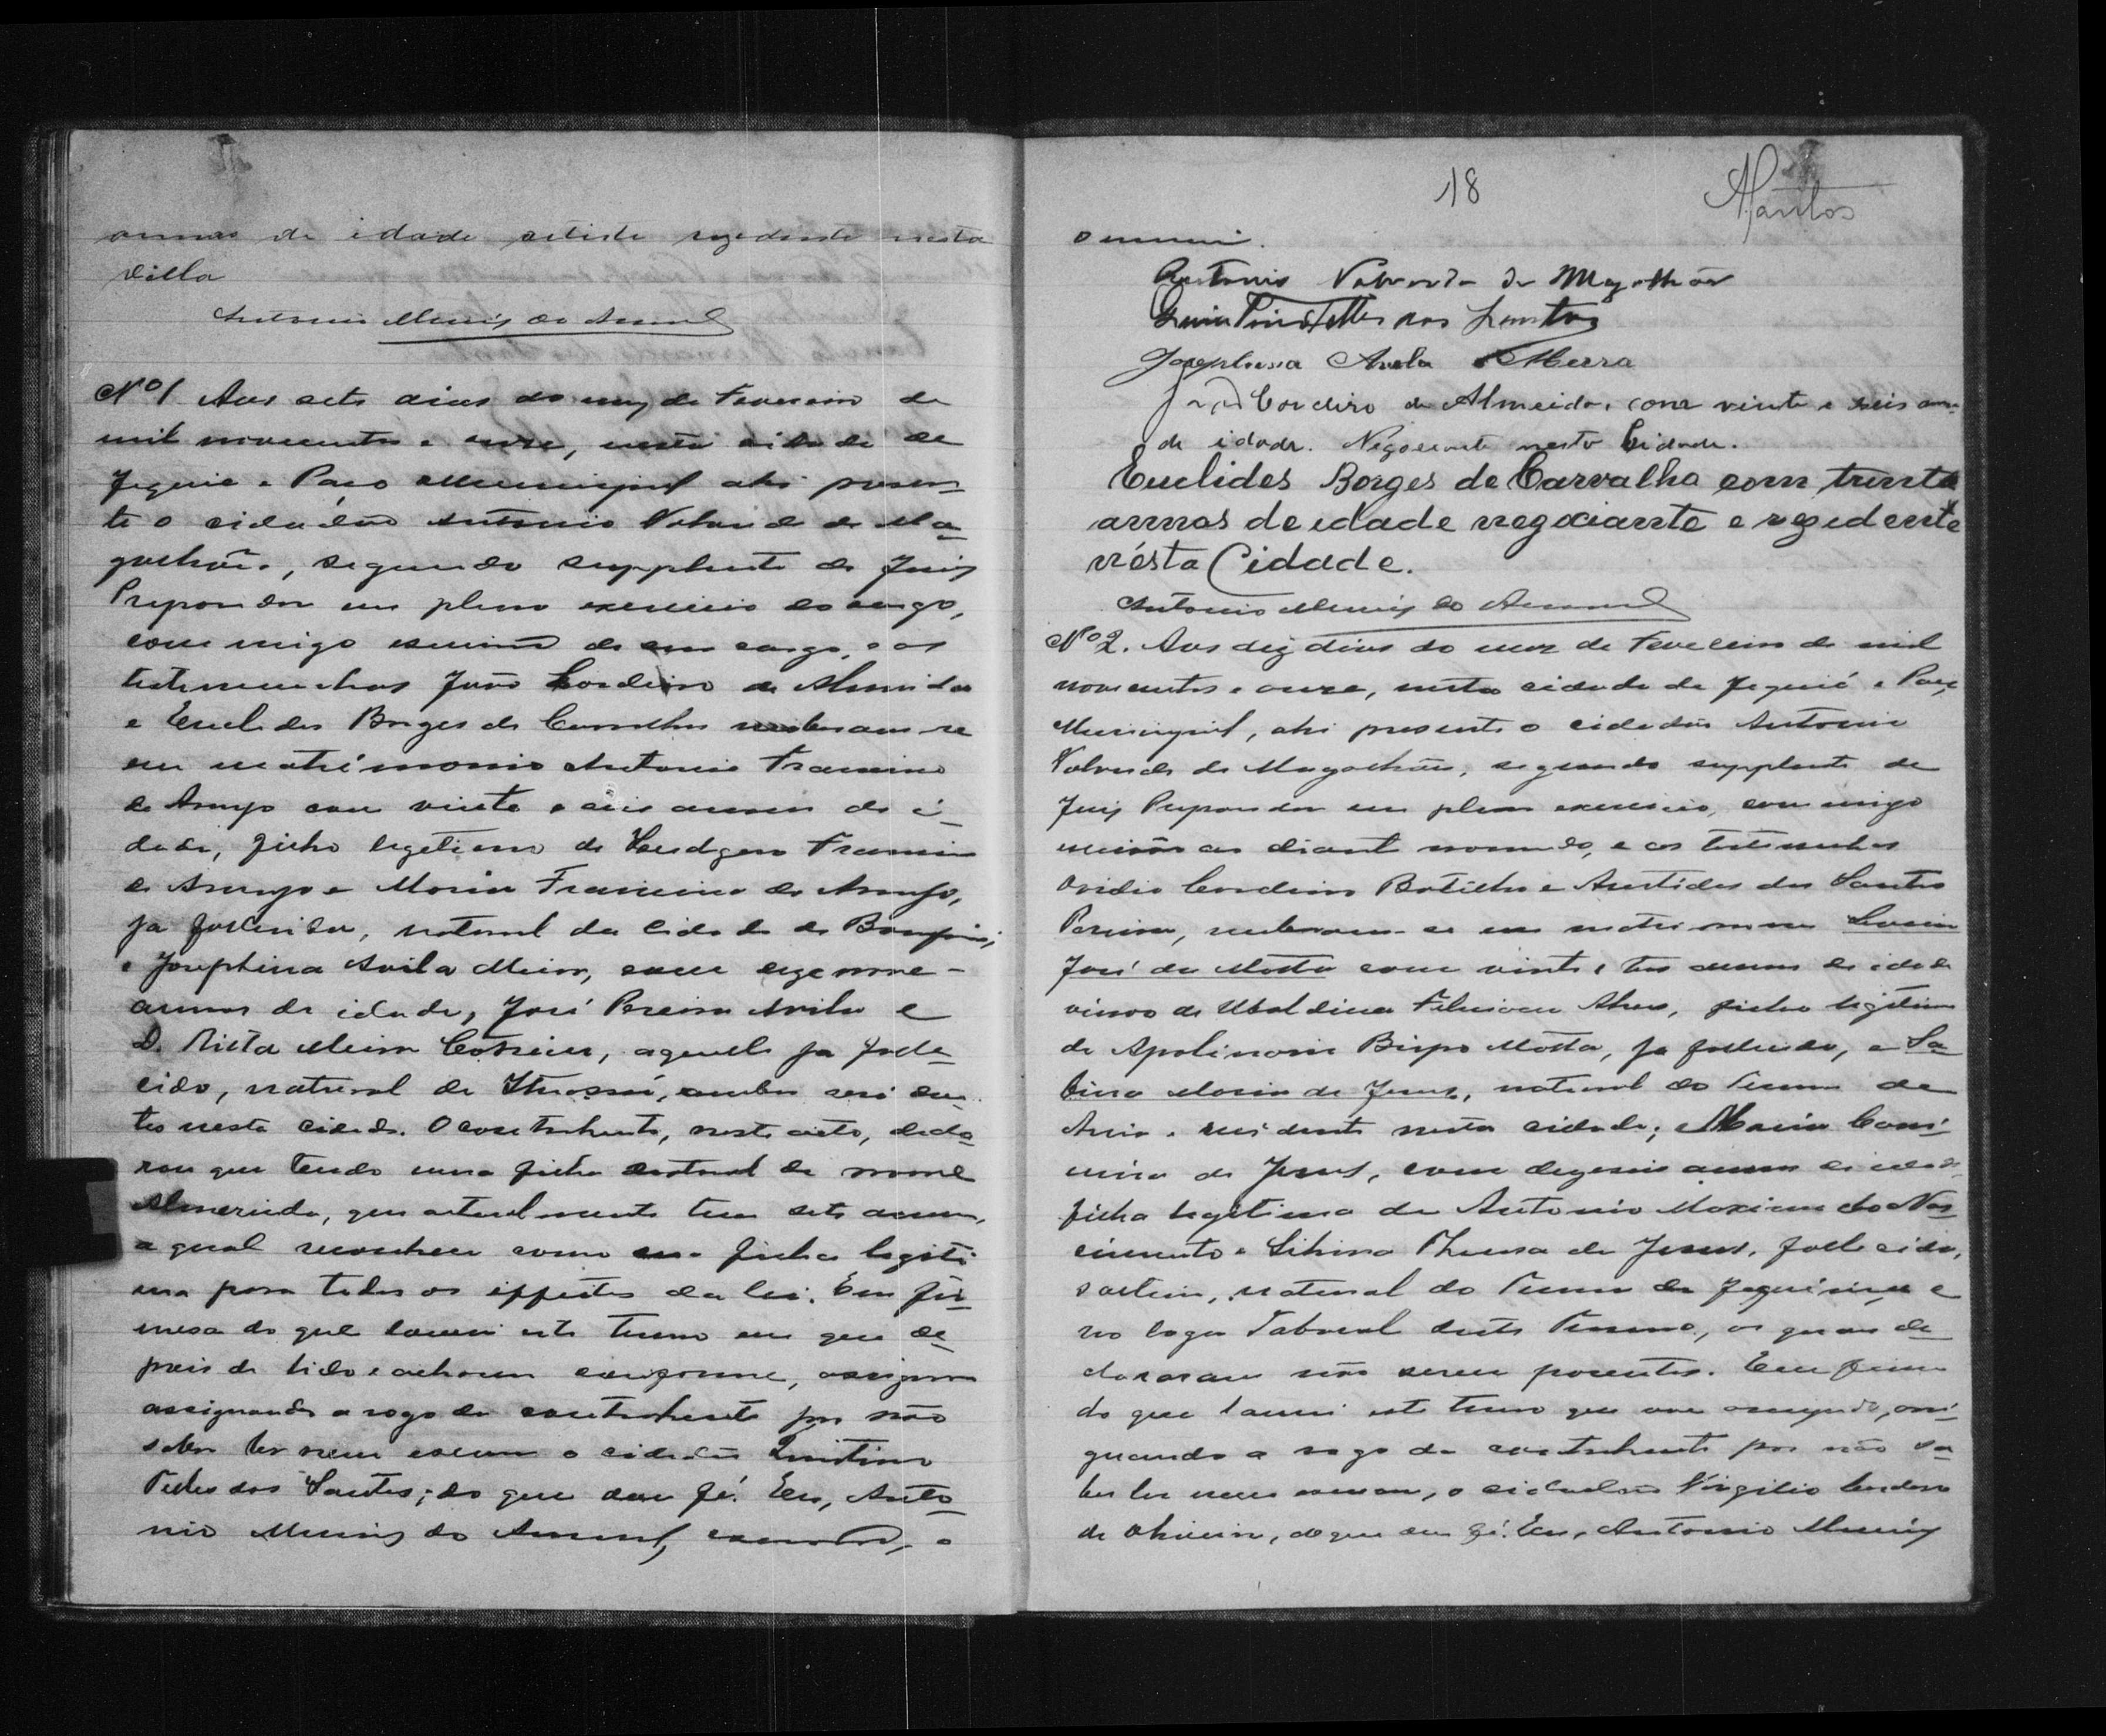 annos de idade artista rezedente nesta
Villa
Antonio Muniz do Amaral
Nº 1 Aos sete dias do mez de Fevereiro de
mil novecentos e onze, nesta cidade de
Jequié e Paço Municipal ahi presen-
te o cidadão Antonio Valverde de Ma-
galhães, segundo supplente de Juiz
Preparador em pleno exercicio do cargo,
commigo escrivão de seu cargo, e as
testemunhas João Cordeiro de Almeida
e Euclides Borges de Carvalho receberam-se
em matrimonio Antonio Francino
de Araujo com vinte e seis annos de i-
dade, filho legitimo de Francino
de Araujo e Maria Francina de Araujo,
ja fallecida, natural da Cidade de
e Josephina Avila Meira, com dezenove
annos de idade, José Pereira Avila e
D. Rita Meira, aquelle ja falle-
cido, natural de ambos residen-
tes nesta cidade. O contrahente, neste acto, decla-
rou que tendo uma filha natural de nome
Almerinda, que actualmente tem sete annos,
a qual reconhece como sua filha legiti-
ma para todos os effeitos da lei. Em fir-
mesa do que lavrei este termo em que de-
pois de lido e acharem conforme, assignam
assignando a rogo do contrahente por não
saber ler nem escrever o cidadão Quintino
Telles dos Santos; do que dou fé. Eu, Anto-
nio Muniz do Amaral, escrivão, o
18
ASantos
escrevi.
Antonio Valverde de Magalhães
Telles dos Santos
Josephina Avila Meira
João Cordeiro de Almeida, com vinte e seis an-
de idade. Negociante nesta Cidade.
Euclides Borges de Carvalho com trinta
annos de idade negociante e rezedente
nésta Cidade.
Antonio Muniz do Amaral
Nº 2. Aos dez dias do mez de Fevereiro de mil
novecentos e onze, nesta cidade de Jequié e Paço
Municipal, ahi presente o cidadão Antonio
Valverde de Magalhães, segundo supplente de
Juiz Preparador em pleno exercicio, commigo
escrivão ao diante nomeado, e as testemunhas
Ovidio Cordeiro Botelho e Aristides dos Santos
Pereira, receberam-se em matrimonio
José da Motta com vinte e tres annos de idade
viuvo de Ubaldina Alves, filho legitimo
de Apolinario Bispo Motta, ja fallecido, e Sa-
bina Maria de Jesus, natural do Termo de
Areia e residente nesta cidade; e Maria Casi-
mira de Jesus, com dezeseis annos de idade
filha legitima de Antonio Maximo do Nas-
cimento e Thereza de Jesus, fallecida,
solteira, natural do Termo de e
no lugar Tabual deste Termo, os quaes de-
clararam não serem parentes. Em firmesa
do que lavrei este termo que vae assignado, assi-
gnando a rogo da contrahente por não sa-
ber ler nem escrever, o cidadão Virgilio
de Oliveira, do que dou fé. Eu, Antonio Muniz